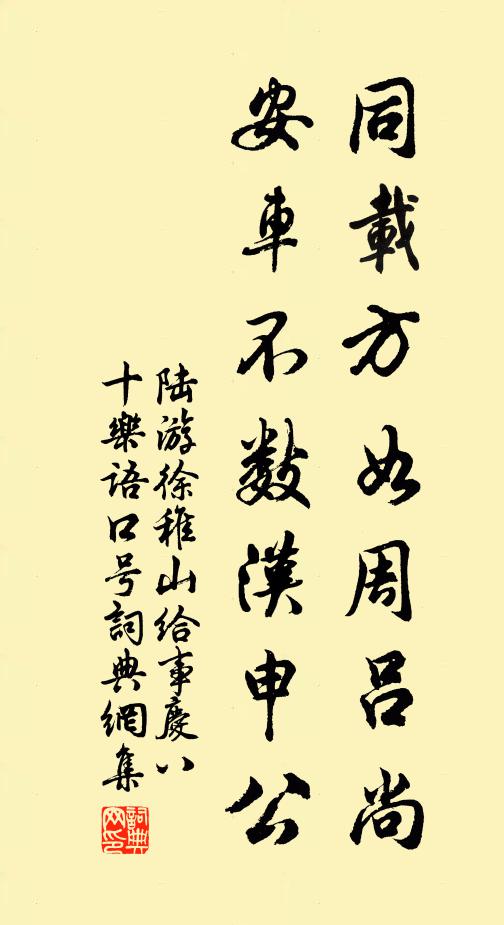 同載方如周呂尚
安車不數漢申公
陸游徐稚山給事慶八
十樂語口号詞典網集
詞典網印